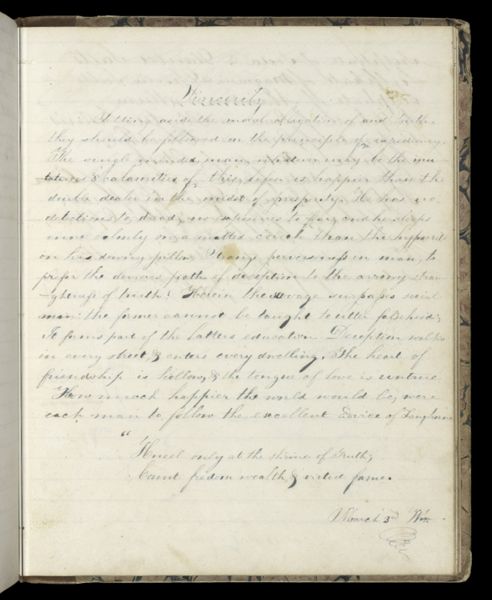 Sincerity
Setting aside the moral obligation of and truth
they should be followed on the principle of expediency.
The single minded man, when exposed to the mu
tations & calamities of this life, is happier than the
double dealer in the midst of prosperity. He has no
detections to dread, no to fear, and he sleeps
more calmly on a matted couch than the hypocrite
on his downy pillow. Strange perverseness in man, to
prefer the devious paths of deception to the
ghtness of truth! Herein the savage surpasses social
man: the former cannot be taught to utter falsehoods;
It forms part of the latters education. Deception walks
in every street & enters every dwelling. The heart of
friendship is hollow, & the tongue of love is untrue.
How much happier the world would be, were
each man to follow the excellent advice of
"Kneel only at the shrine of Truth;
Count freedom wealth & virtue fame.
March 3rd